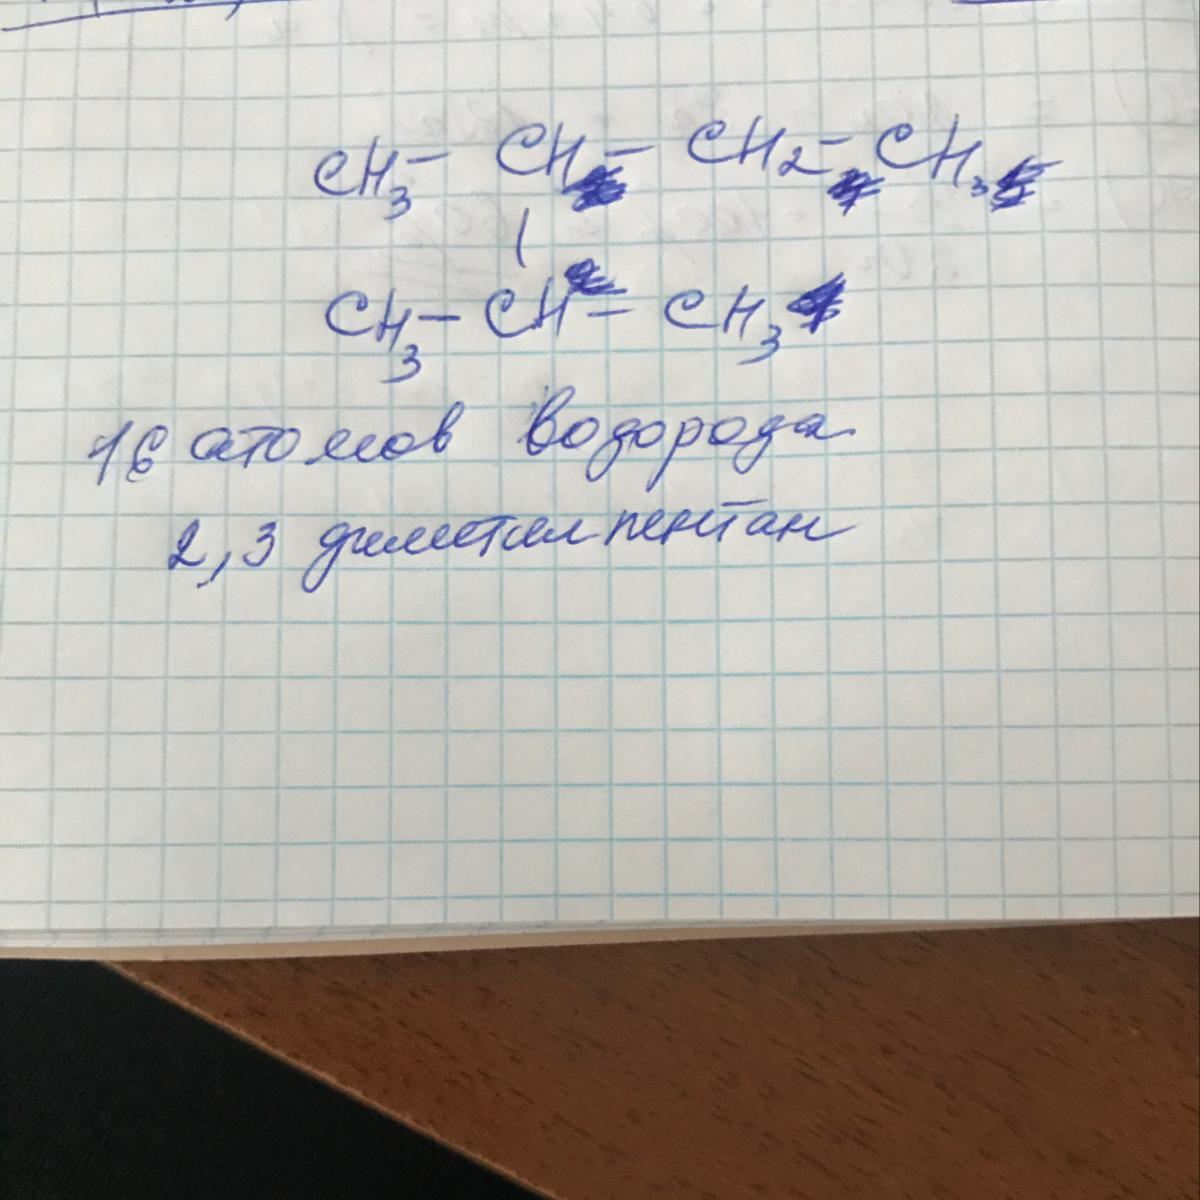 CH3 - CH - CH2 - CH3
|
CH3 - CH - CH3
16 атомов водорода
2,3 диметилпентан